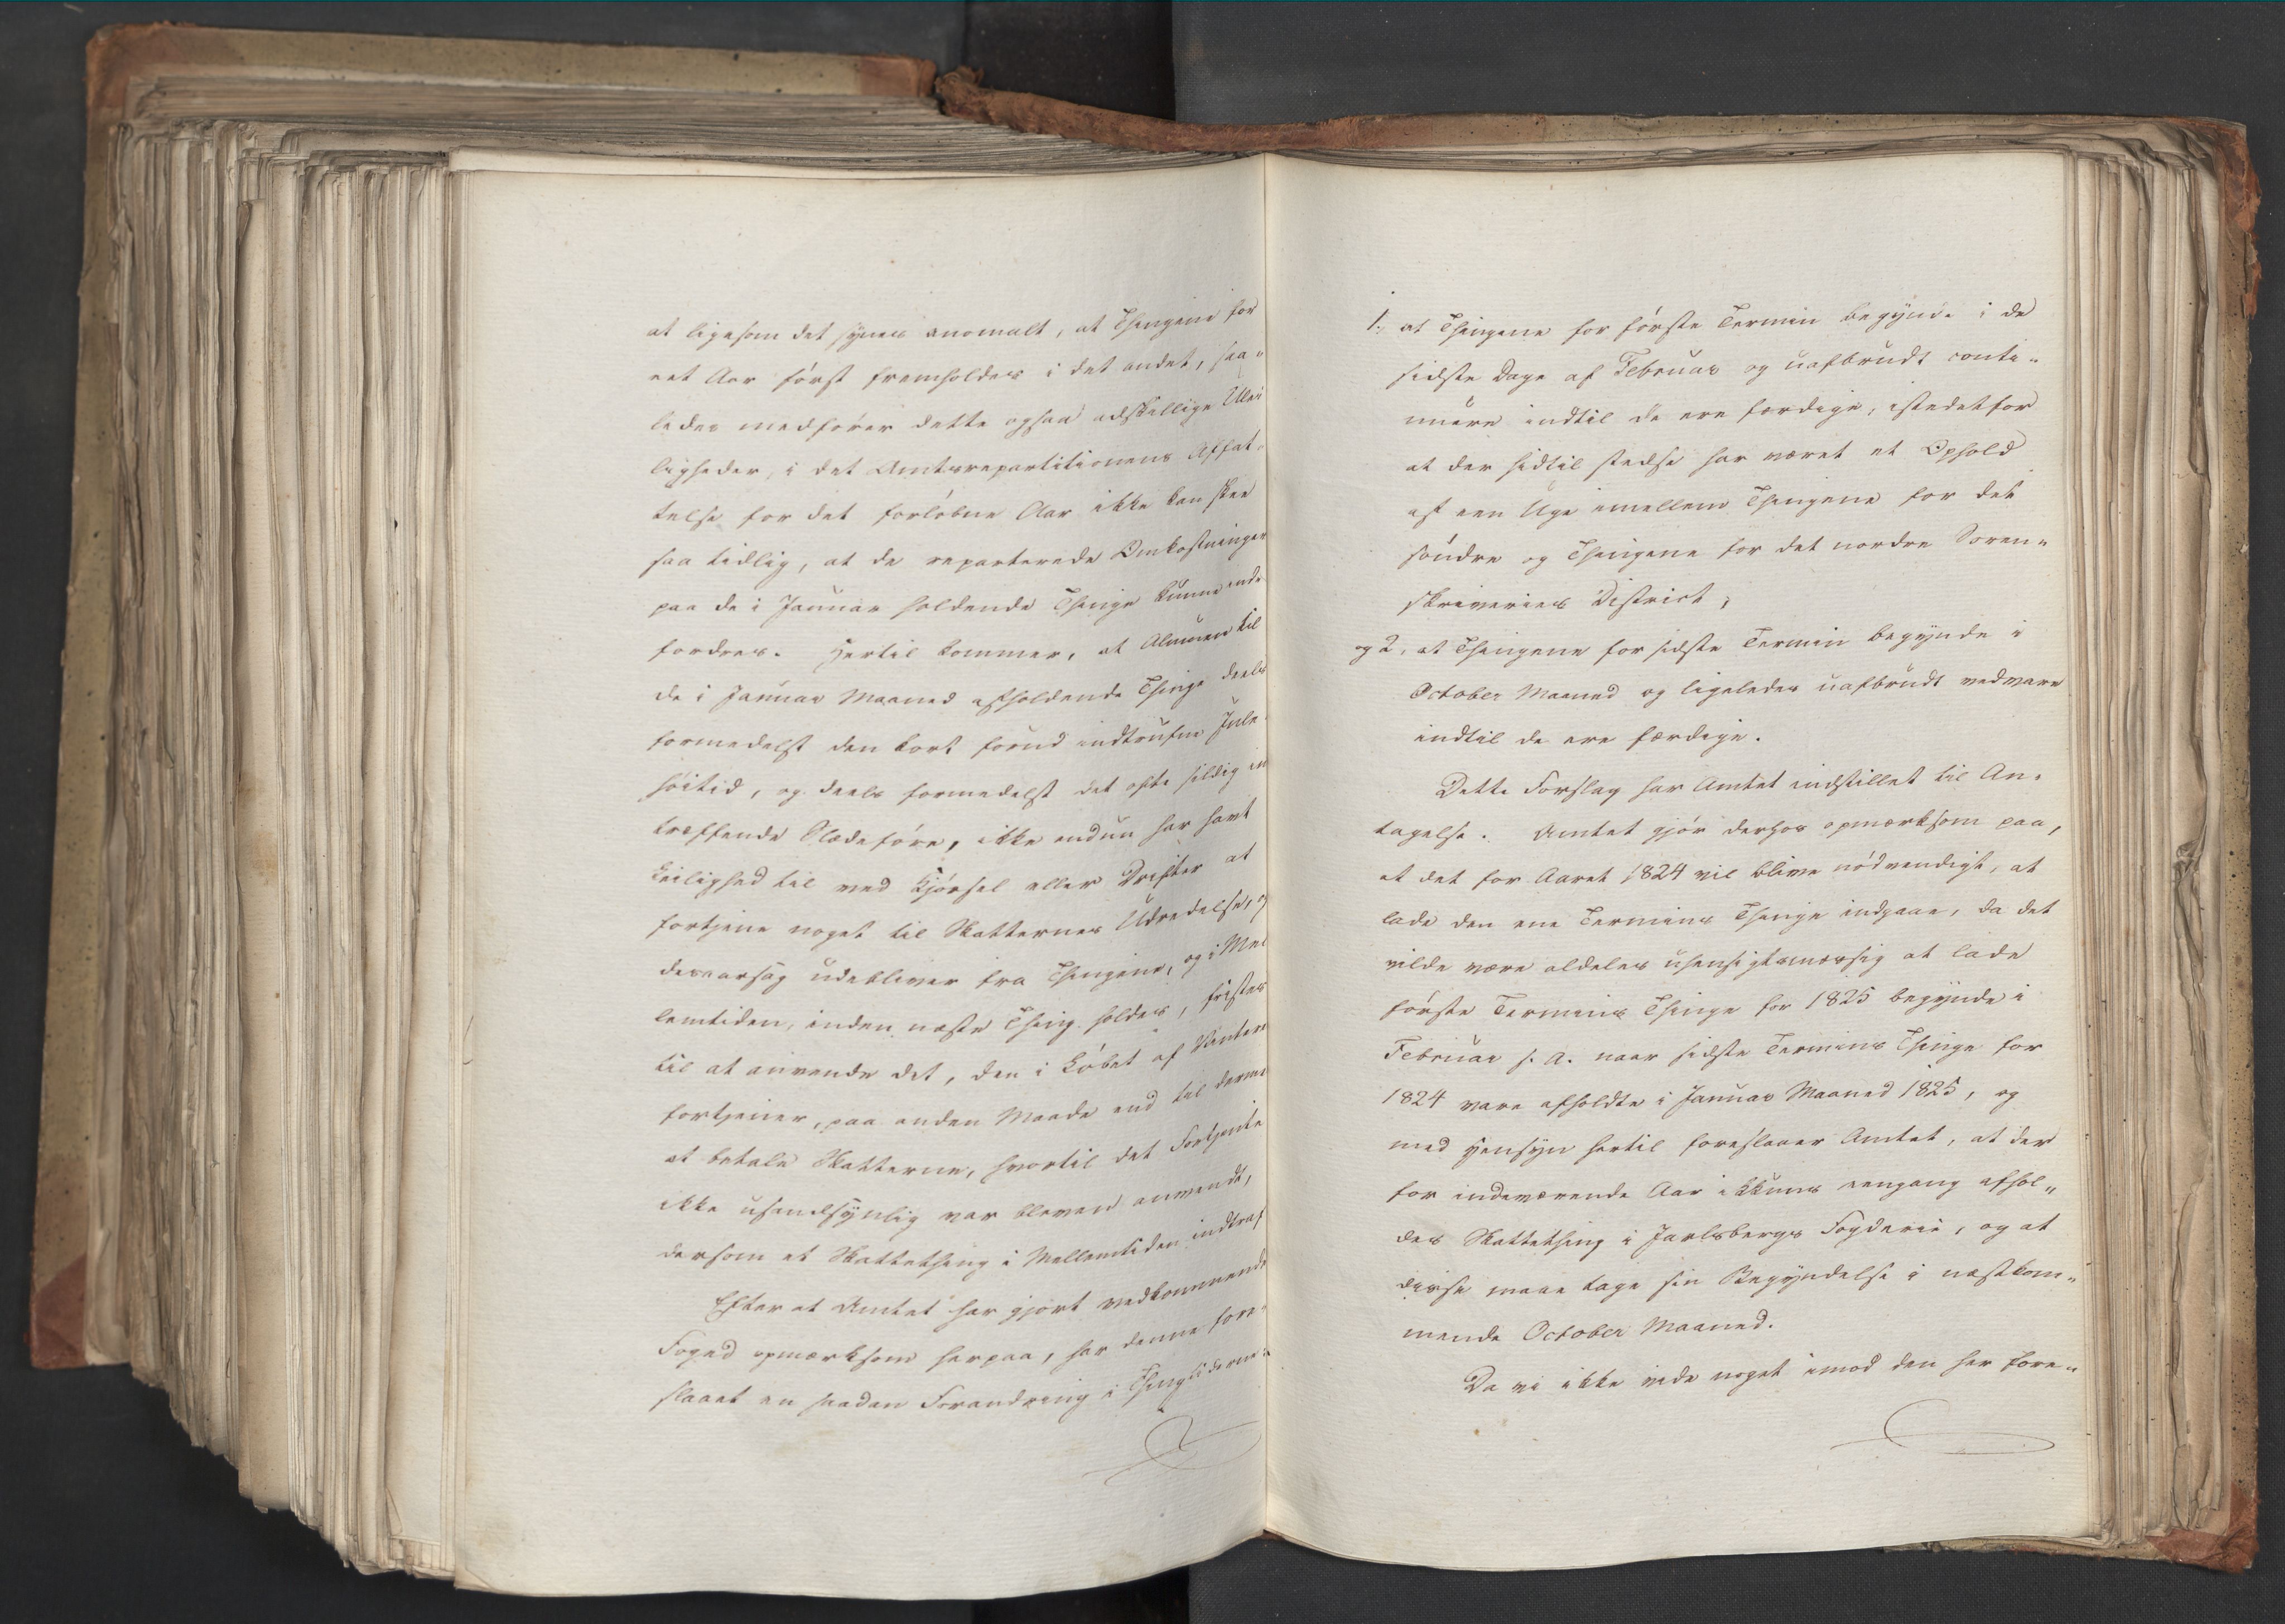 at ligesom det synes anomalt, at Thingene for
eet Aar först fremholdes i det andet, saa-
ledes medförer dette ogsaa adskillige Ulei-
ligheder, i det Amtsrepartitionens Affat-
telse for det forløbne Aar ikke kan skee
saa tidlig, at de reparterede Omkostninger
paa de i Januar holdende Thinge kunne ind-
fordres. Hertil kommer, at Almuen til
de i Januar Maaned afholdende Thinge deels
formedelst den kort forud indtrufne Jule-
höitid, og deels formedelst det ofte sildig ind
træffende Slædeföre, ikke endnu har havt
Leilighed til ved Kjörsel eller Drifter at
fortjene noget til Skatternes Udredelse, og
desaarsag udebliver fra Thingene, og i Mel
lemtiden, inden næste Thing holdes, fristes
til at anvende det, den i Löbet af Vinteren
fortjener, paa anden Maade end til dermed
at betale Skatterne, hvortil det Fortjente
ikke usandsynlig var bleven anvendt,
dersom et Skattething i Mellemtiden indtraf
Efter at Amtet har gjort vedkommende
Foged opmærksom herpaa, har denne fore-
slaaet en saadan Forandring i Thingtiderne:
1., at Thingene for förste Termin begynde i de
sidste Dage af Februar og uafbrudt conti-
nuere indtil de ere færdige, istedetfor
at der hidtil stedse har været et Ophold
af een Uge imellem Thingene for det
söndre og Thingene for det nordre Soren-
skriveries District;
og 2, at Thingene for sidste Termin begynde i
October Maaned og ligeledes uafbrudt vedvare
indtil de ere færdige.
Dette Forslag har Amtet indstillet til An-
tagelse. Amtet gjör derhos opmærksom paa,
at det for Aaret 1824 vil blive nödvendigt, at
lade den ene Termins Thinge indgaae, da det
vilde være aldeles uhensigtsmæssig at lade
förste Termins Thinge for 1825 begynde i
Februar s. A. naar sidste Termins Thinge for
1824 vare afholdte i Januar Maaned 1825, og
med Hensyn hertil foreslaaer Amtet, at der
for indeværende Aar ikkuns eengang afhol-
des Skattething i Jarlsbergs Fogderie, og at
disse maae tage sin Begyndelse i næstkom-
mende October Maaned.
Da vi ikke vide noget imod den her fore-